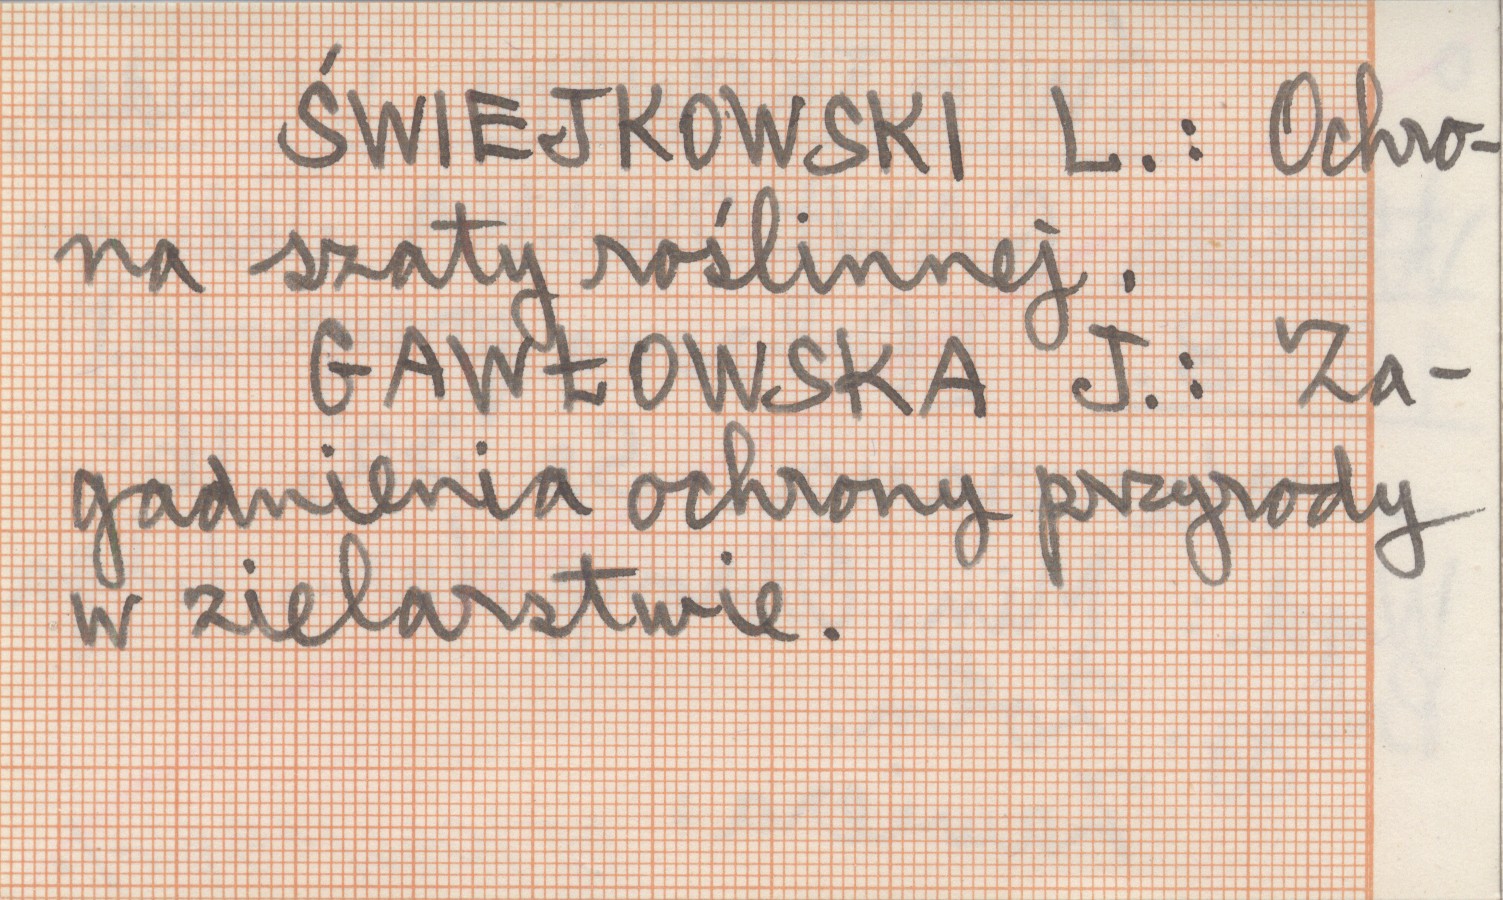 ŚWIEJKOWSKI L.: Ochro-
na szaty roślinnej.
GAWŁOWSKA J.: Za-
gadnienia ochrony przyrody
w zielarstwie.